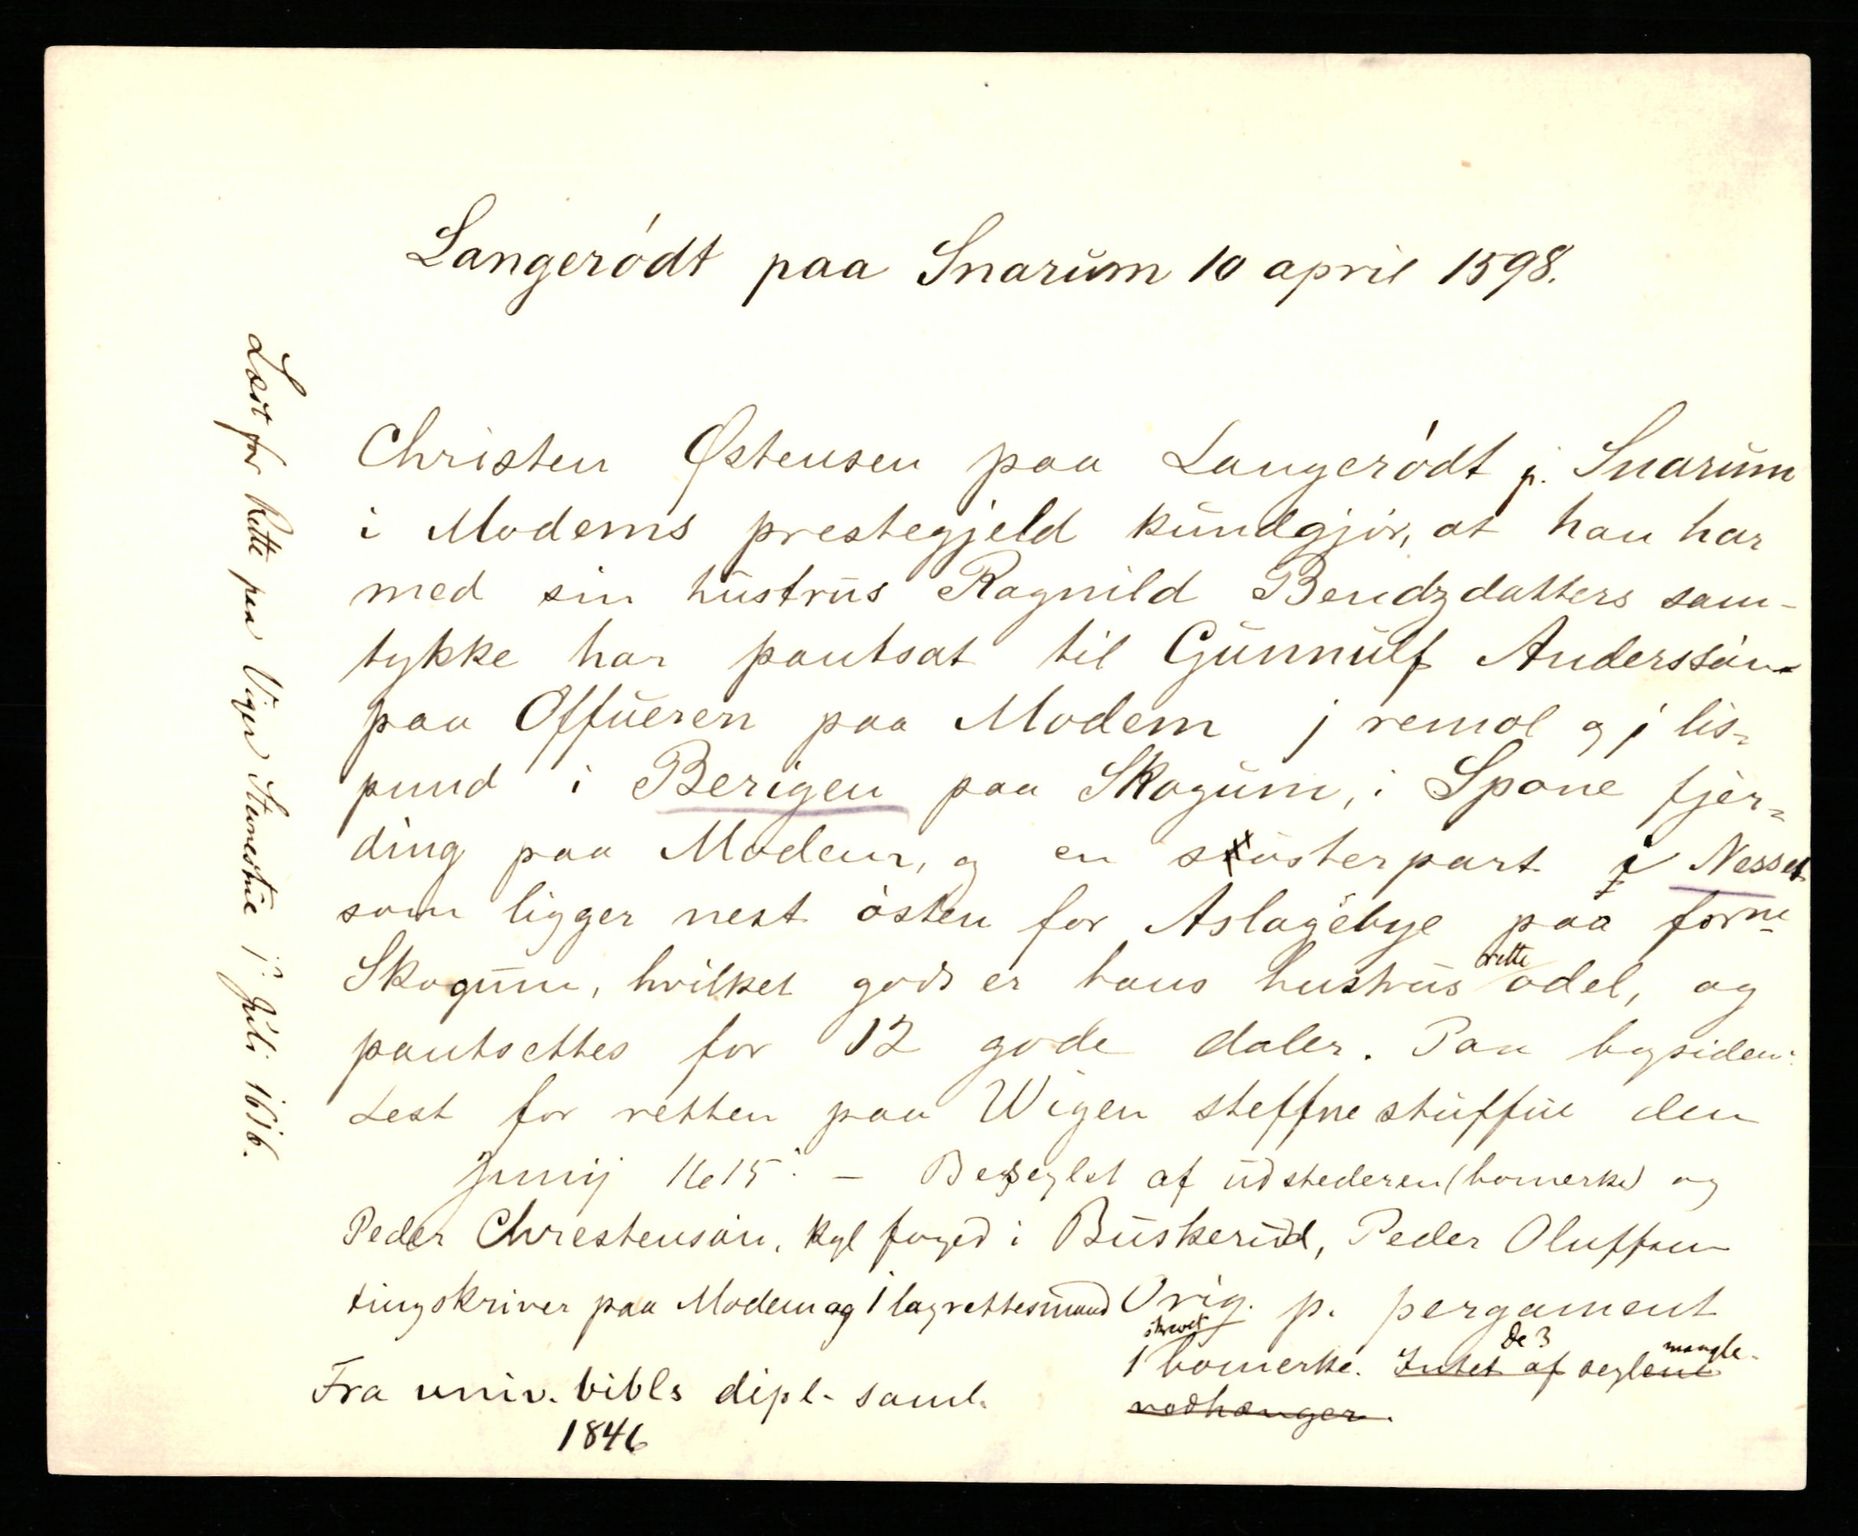 Langerødt paa Snarum 10 april 1598.
Christen Østensen paa Langerødt p. Snarum
i Modems prestegjeld kundgjør, at han har
med sin hustrus Ragnild Bendzdatters sam-
tykke har pantsat til Gunnulf Anderssøn
paa Offueren paa Modem j remol og j lis-
pund i Berigen paa Skogum, i Spone fjer-
ding paa Modem, og en søsterpart i Nesset
som ligger nest østen for Aslagebye paa forne
Skogum, hvilket gods er hans hustrus rette odel, og
pantsettes for 12 gode daler. Paa bagsiden:
Lest for retten paa Wigen steffnestuffue den
Junij 1615. — Beseglet af udstederen (bomerke) og
Peder Chrestensøn, kgl foged i Buskerud, Peder Oluffsen
tingskriver paa Modem og 1 lagrettesmand Orig. p. pergament
skrevet
1 bomerke. Intet af de 3 seglene mangle.
vedhænger.
Fra univ. bibls dipl. saml.
1846
Læst for Rette paa Vigen Steunestue 1 Juli 1616.